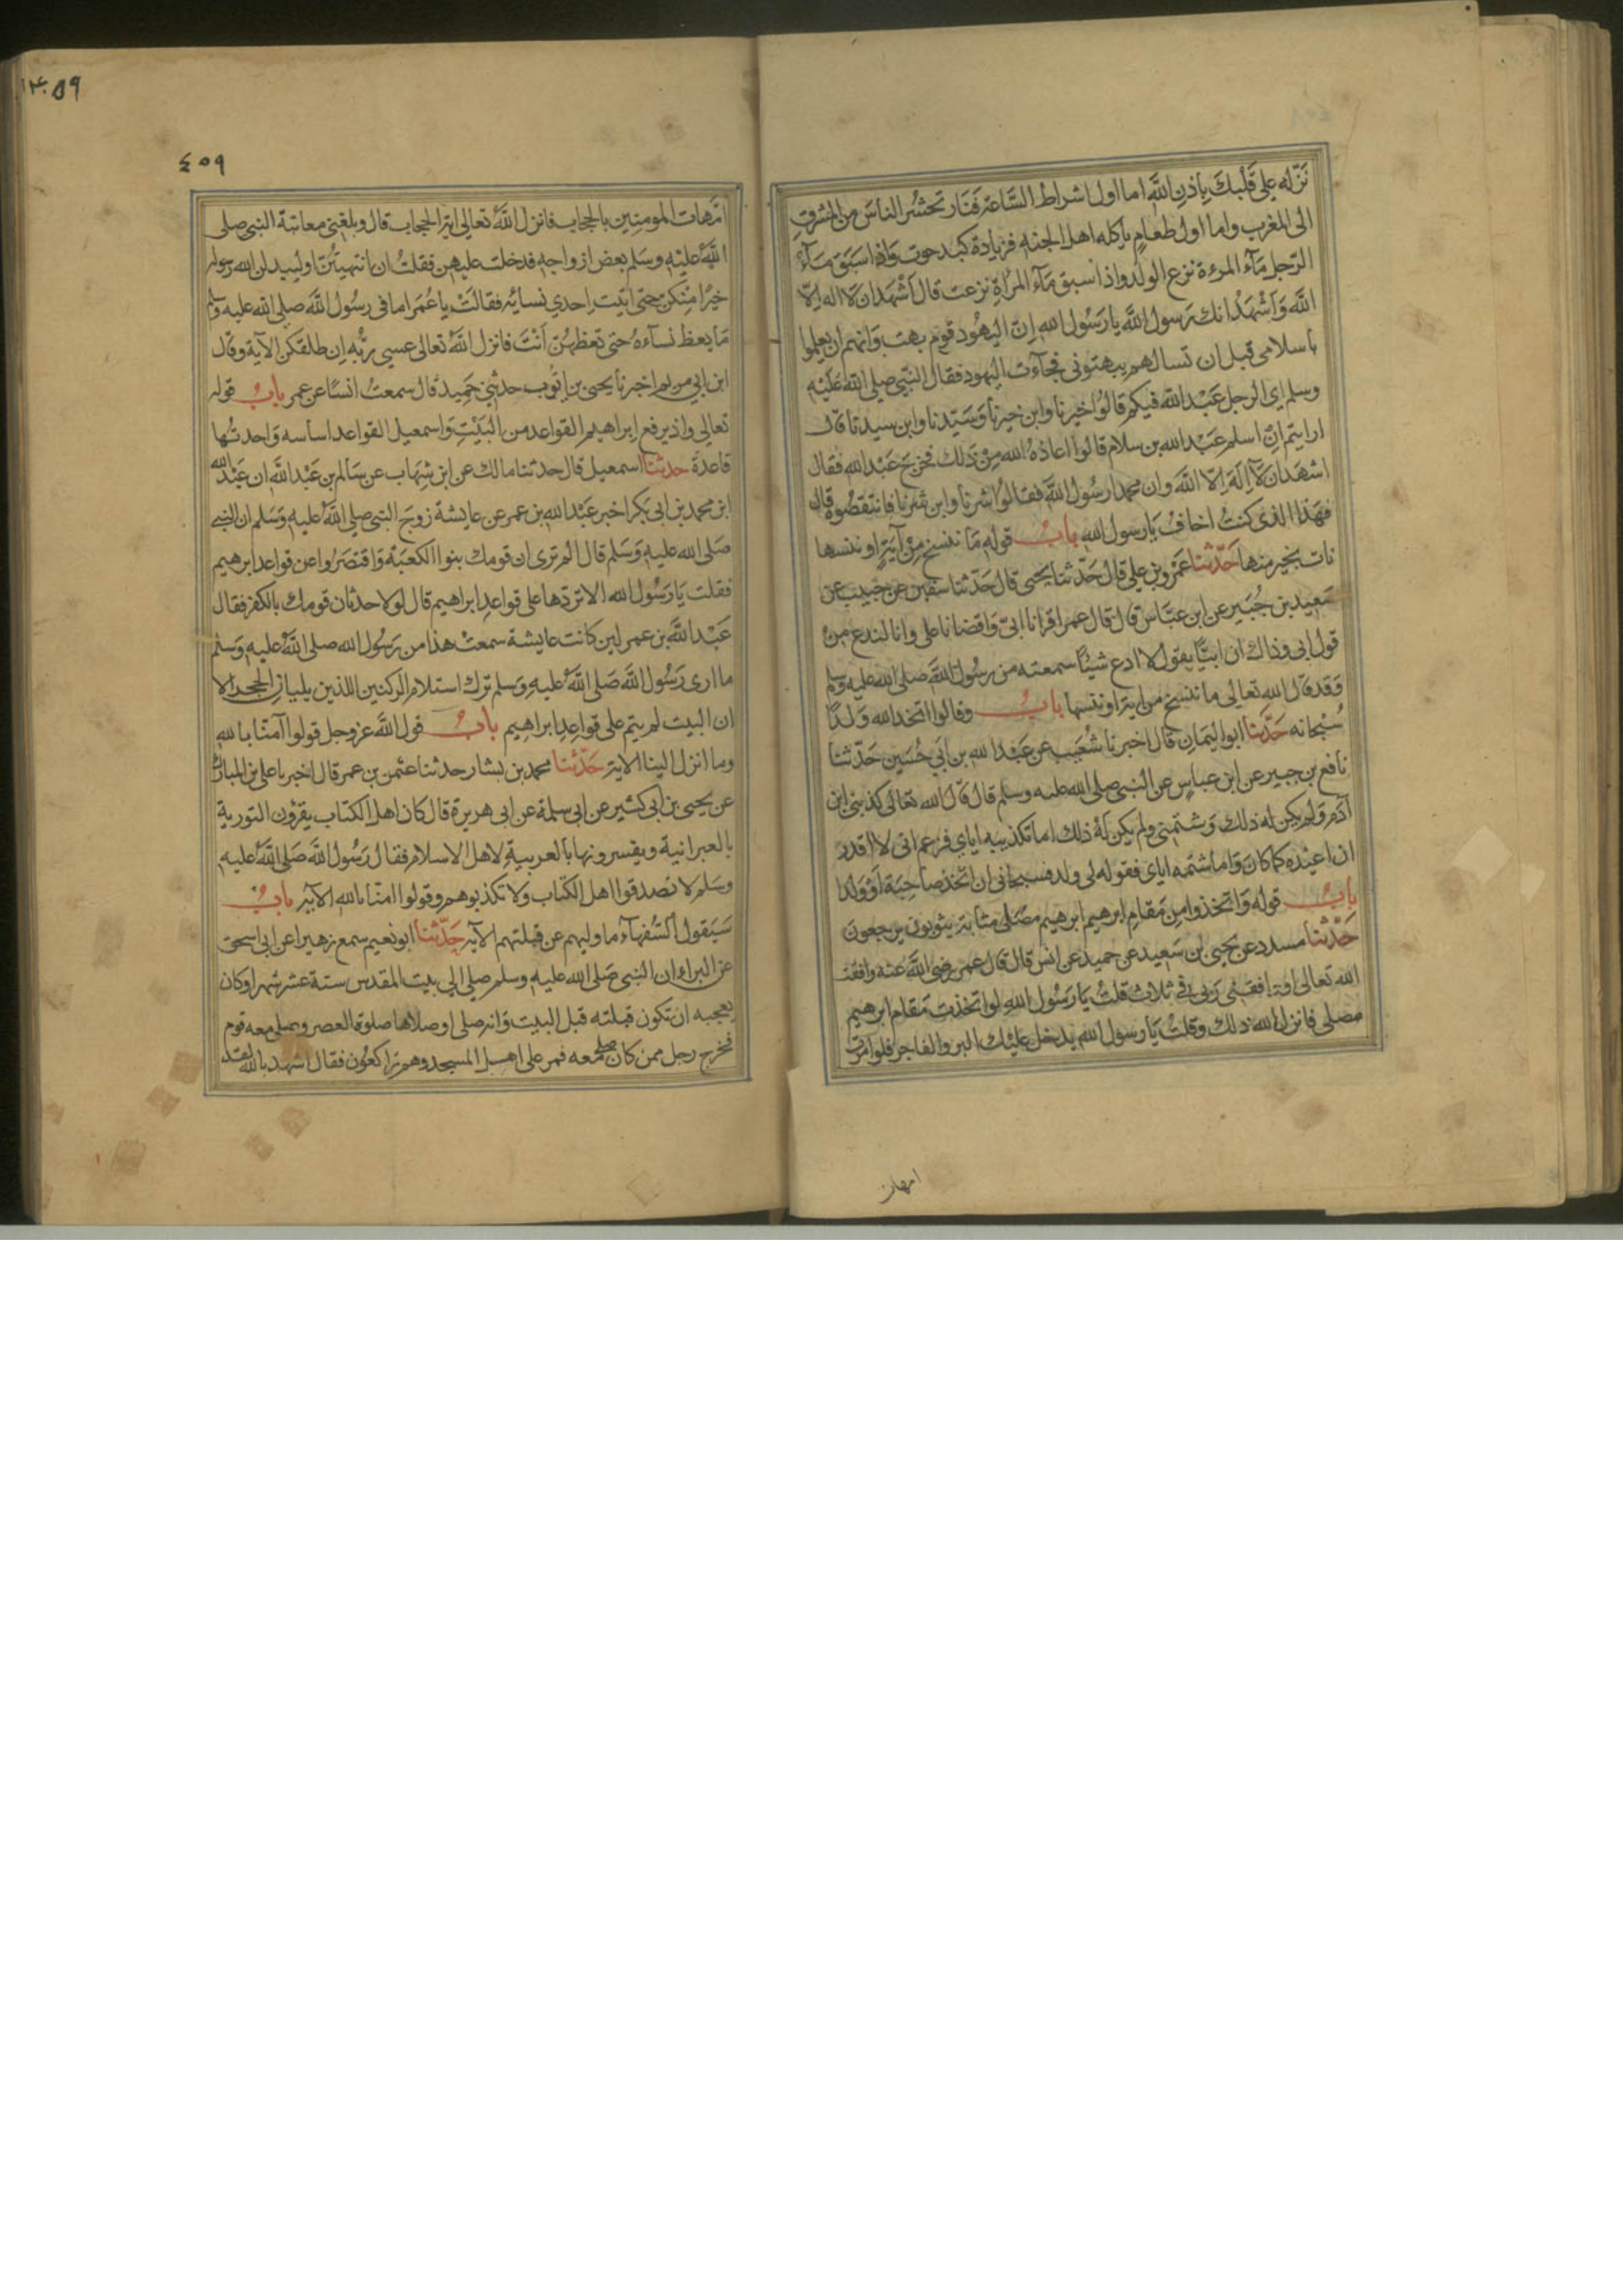 نَزّله علي قَلْبكَ بِاذنِ اللَّهِ اما اول اشراط السَّاعة فَنَار تحشُر الناسَ من المشرقِ
الى المغرب واما اول طعَامٍ ياكله اهل الجنه فزيادة كبد حوت وَاذا سَبَقَ مَآءُ
الرّجل مَآءَ المرءة نزع الولد واذا سبق مَآء المرأةِ نزعت قال اَشْهَدان لَا اله اِلّا
اللَّه وَاَشْهَدُ انك رَسول اللَّه يا رَسُول الله اِنّ اليهُود قوم بهت وَانهم ان يعلموا
باسلامى قبل ان تسالهم يبهتونى فجآءت اليهود فقال النّبي صلى الله عَلَيْهِ
وسلم اي الرجل عَبْد اللَّه فيكم قالوُا خيرنا وابن خيرنا وَسَيّدنا وابن سيدنا قال
ارايتم اِنْ اسلم عَبْد الله بن سلام قالوا اعاذهُ الله مِنْ ذلك فخرج عَبْد الله فقال
اشهَدان لَا اِلَهَ اِلّا اللَّه وان محمدا رسُول اللَّه فقالوُا شرنا وابن شرنا فانتقصُوه قال
فهَذا الذى كنتُ اخافُ يَا رسول الله بابُ قوله مَا ننسخ مِنْ آيَةٍ او ننسها
نات بخير منها حَدّثنا عَمْرو بن علي قال حَدّثنا يحيى قال حَدّثنا سفين عن حبيب عن
سَعِيد بن جُبَير عن ابن عبَّاس قال قال عمر اقرانا ابيّ وَاقضانا على وانا لندع من
قول ابى وذاك ان ابيّا يقول لا ادع شيئًا سمعته من رسُول اللَّه صلى الله عليه وسلم
وَقد قال الله تعالى ما ننسخ من اية او ننسها بابُ وقالوا اتخذ الله وَلدًا
سُبحانه حَدَّثنا ابو اليَمَان قال اخبرنا شُعَيب عن عَبد الله بن اَبي حُسَين حَدّثنا
نافع بن جبير عن ابن عباس عن النبى صلى الله عليه وسلم قال قال الله تعَالى كذبنى ابن
آدَم وَلم يكن له ذلك وَشتمنى ولم يكن لَهُ ذلك اما تكذيبه اياي فزعم انى لا اقدر
ان اعيْده كما كان وَاما شتمه اياى فقوله لى ولد فسبحانى ان اتخذ صاحِبَة اَوْ وَلدا
بابُ قوله وَاتخذوا مِن مَقامِ ابرهيم ابرهيم مصَلى مثابة يثوبون يرجعون
حَدّثنا مسدد عن يحيى بن سَعِيد عن حميد عن انس قال قال عمر رضى اللَّه عنه وافقت
الله تعالى او وافقنى رَبى فى ثلاث قلتُ يَا رَسُول اللهِ لوا تخذت مَقام ابرهيم
مصلى فانزل الله ذلك وقلتُ يَا رسول الله يدخل عليْك البر والفاجر فلوا مرت
امهات
١٤٠٥٩
٤٥٩
امّهات المومنِين بالحجاب فانزل اللَّهُ تعالي اية الحجاب قال وبلغنى معاتبة النبى صلى
اللَّهُ عليْه وسَلم بعض ازواجه فدخلت عليهن فقلتُ ان انتهيتُنّ او ليبدلن الله رسوله
خيرًا مِنكن حتى اتيت اِحدي نسائه فقالتْ يا عُمَر اما فى رسُول اللَّه صلى الله عليه وسلم
مَا يعظ نسآءهُ حتى تعظهُنّ اَنْتَ فانزل اللَّهُ تعالى عسى ربُّه اِن طلقكن الآية وقال
ابن ابى مريم اخبرنا يحيى بن ايّوب حدثنى حُمَيد قال سمعتُ انسًا عن عمر بابُ قوله
تعالى واذ يرفع ابراهيم القواعد من البَيْتِ وَاسمعيل القواعد اساسه وَاحدتُها
قاعدَة حدثنا اسمعيل قال حدثنا مالك عن ابن شِهَاب عن سَالم بن عَبْد اللَّه ان عَبْد الله
ابن محمد بن ابى بَكر اخبر عَبْد الله بن عمر عن عايشة زوجَ النبى صلي اللَّهُ عليه وَسَلم ان النبى
صَلى الله عليهِ وَسَلم قال المْ ترى ان قومك بنوا الكعبَة وَاقتصَرُوا عن قواعد ابرهيم
فقلت يَا رَسُول الله الا تردّها على قواعِدِ ابراهيم قال لولا حدثان قومك بالكفر فقال
عَبْد اللَّه بن عمر لئن كانت عايشة سمعتْ هذا من رَسُول الله صلى اللَّهُ عليهِ وَسَلم
ما ارى رَسُول اللَّه صَلى اللَّهُ عليهِ وَسَلم ترك استلام الركنين اللذين يليان الحجر الا
ان البيت لم يتم على قواعِدِ ابراهيم بابُ قول اللَّه عز وجل قولوا آمنّا بالله
وما انزل الينا الاية حَدّثنا محمد بن بشار حدثنا عثمن بن عمر قال اخبرنا على بن المبارك
عن يحيى بن ابى كثير عن ابى سلمة عن ابى هريرة قال كان اهل الكتاب يقرؤن التورية
بالعبرانية ويفسرونها بالعربيةِ لاهل الاسلام فقال رَسُول اللَّه صَلى اللَّهُ عليه
وسَلم لا تصدقوا اهل الكتاب ولا تكذبوهم وقولوا امنّا بالله الآية بابُ
سَيَقول السُّفهآء ما وليهم عن قبلتهم الآية حَدّثنا ابو نعيم سمع زهيرا عن ابى اسحق
عن البراءِ ان النبى صَلى الله عليهِ وسلم صلى الى بيت المقدس ستة عشر شهرا وكان
يعجبه ان تكون قبلته قبل البيت وَانه صلى او صلاها صلوة العصر وصلى معه قوم
فخرج رجل ممن كان صلى معه فمر على اهل المسجد وهم راكعُون فقال اشهد بالله لقد